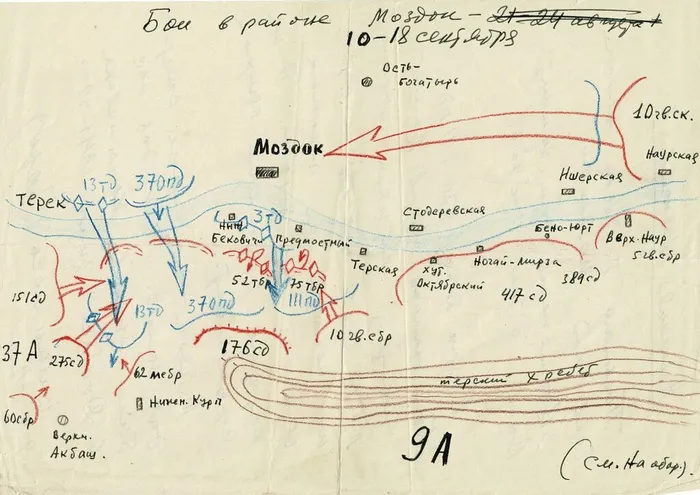 Бои в районе Моздок - 21-24 августа
10-18 сентября
Ость-
Богатырь
10гв.ск.
Моздок
Наурская
Ишерская
13тд
370пд
Терек
3тд
Нижн.
Бековичи
Предмостный
Стодеревская
Бено-Юрт
Верх.Наур
5гв.сбр
Терская
Хут.
Октябрьский
Ногай-Мирза
389сд
417 сд
52тбр
75тбр
151сд
13тд
370пд
111пд
10гв.сбр
37А
275сд
176сд
62мсбр
терский хребеб
60сбр
Нижн.Курп
Верхн.
Акбаш.
9А
(см. На обор.)